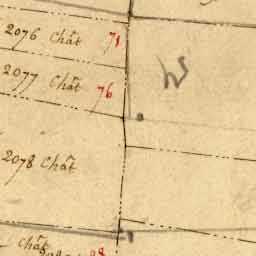 2076 Chât 71
2077 Chât 76
2078 Chât
Chât